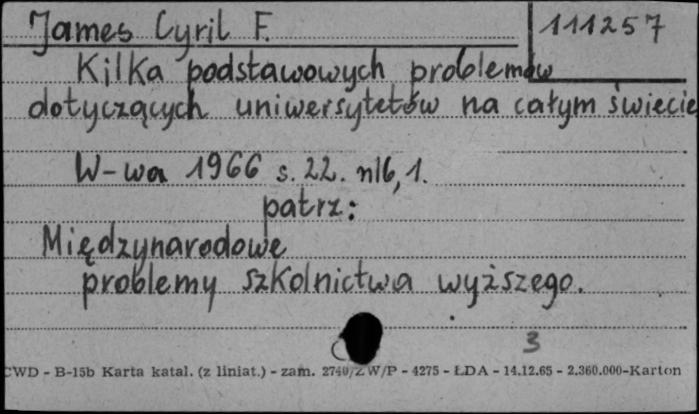 James Cyril F.
111257
Kilka podstawowych problemów
dotyczących uniwersytetów na całym świecie
W-wa 1966 s. 22. nlb, 1.
patrz:
Międzynarodowe
problemy szkolnictwa wyższego.
3
CWD - B-15b Karta katal. (z liniat.) - zam. 2740/ZW/P - 4275 - ŁDA - 14.12.65 - 2.360.000-Karton